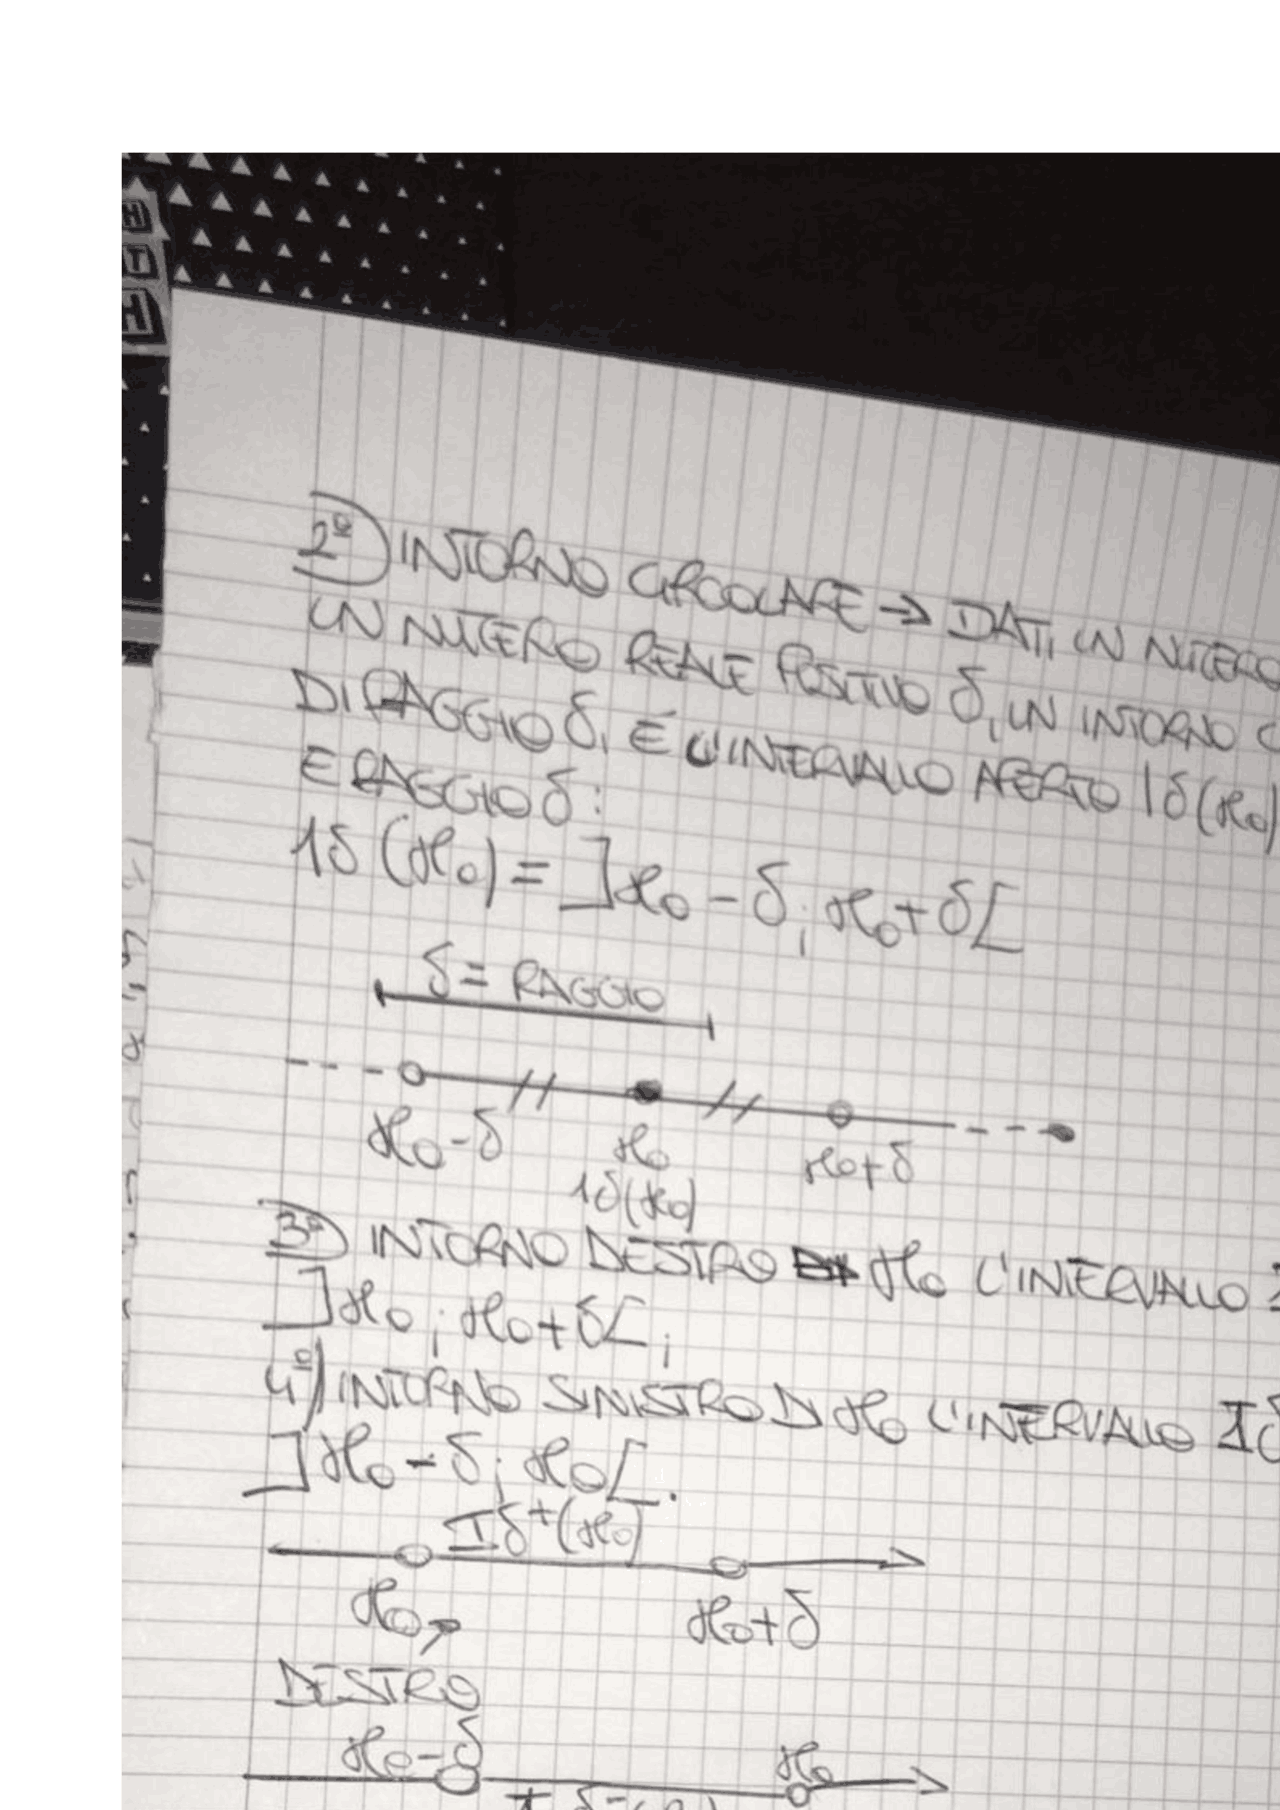 2º) INTORNO CIRCOLARE → DATI UN NUMERO
UN NUMERO REALE POSITIVO δ, UN INTORNO C
DI RAGGIO δ, È L'INTERVALLO APERTO Iδ(x0)
E RAGGIO δ:
Iδ (x0) = ]x0 - δ; x0 + δ[
δ = RAGGIO
x0 - δ x0 x0 + δ
Iδ(x0)
3º) INTORNO DESTRO DI x0 L'INTERVALLO I
]x0; x0 + δ[;
4º) INTORNO SINISTRO DI x0 L'INTERVALLO Iδ
]x0 - δ; x0[.
Iδ+(x0)
x0 x0 + δ
DESTRO
x0 - δ x0
Iδ-(x0)
H
T
H